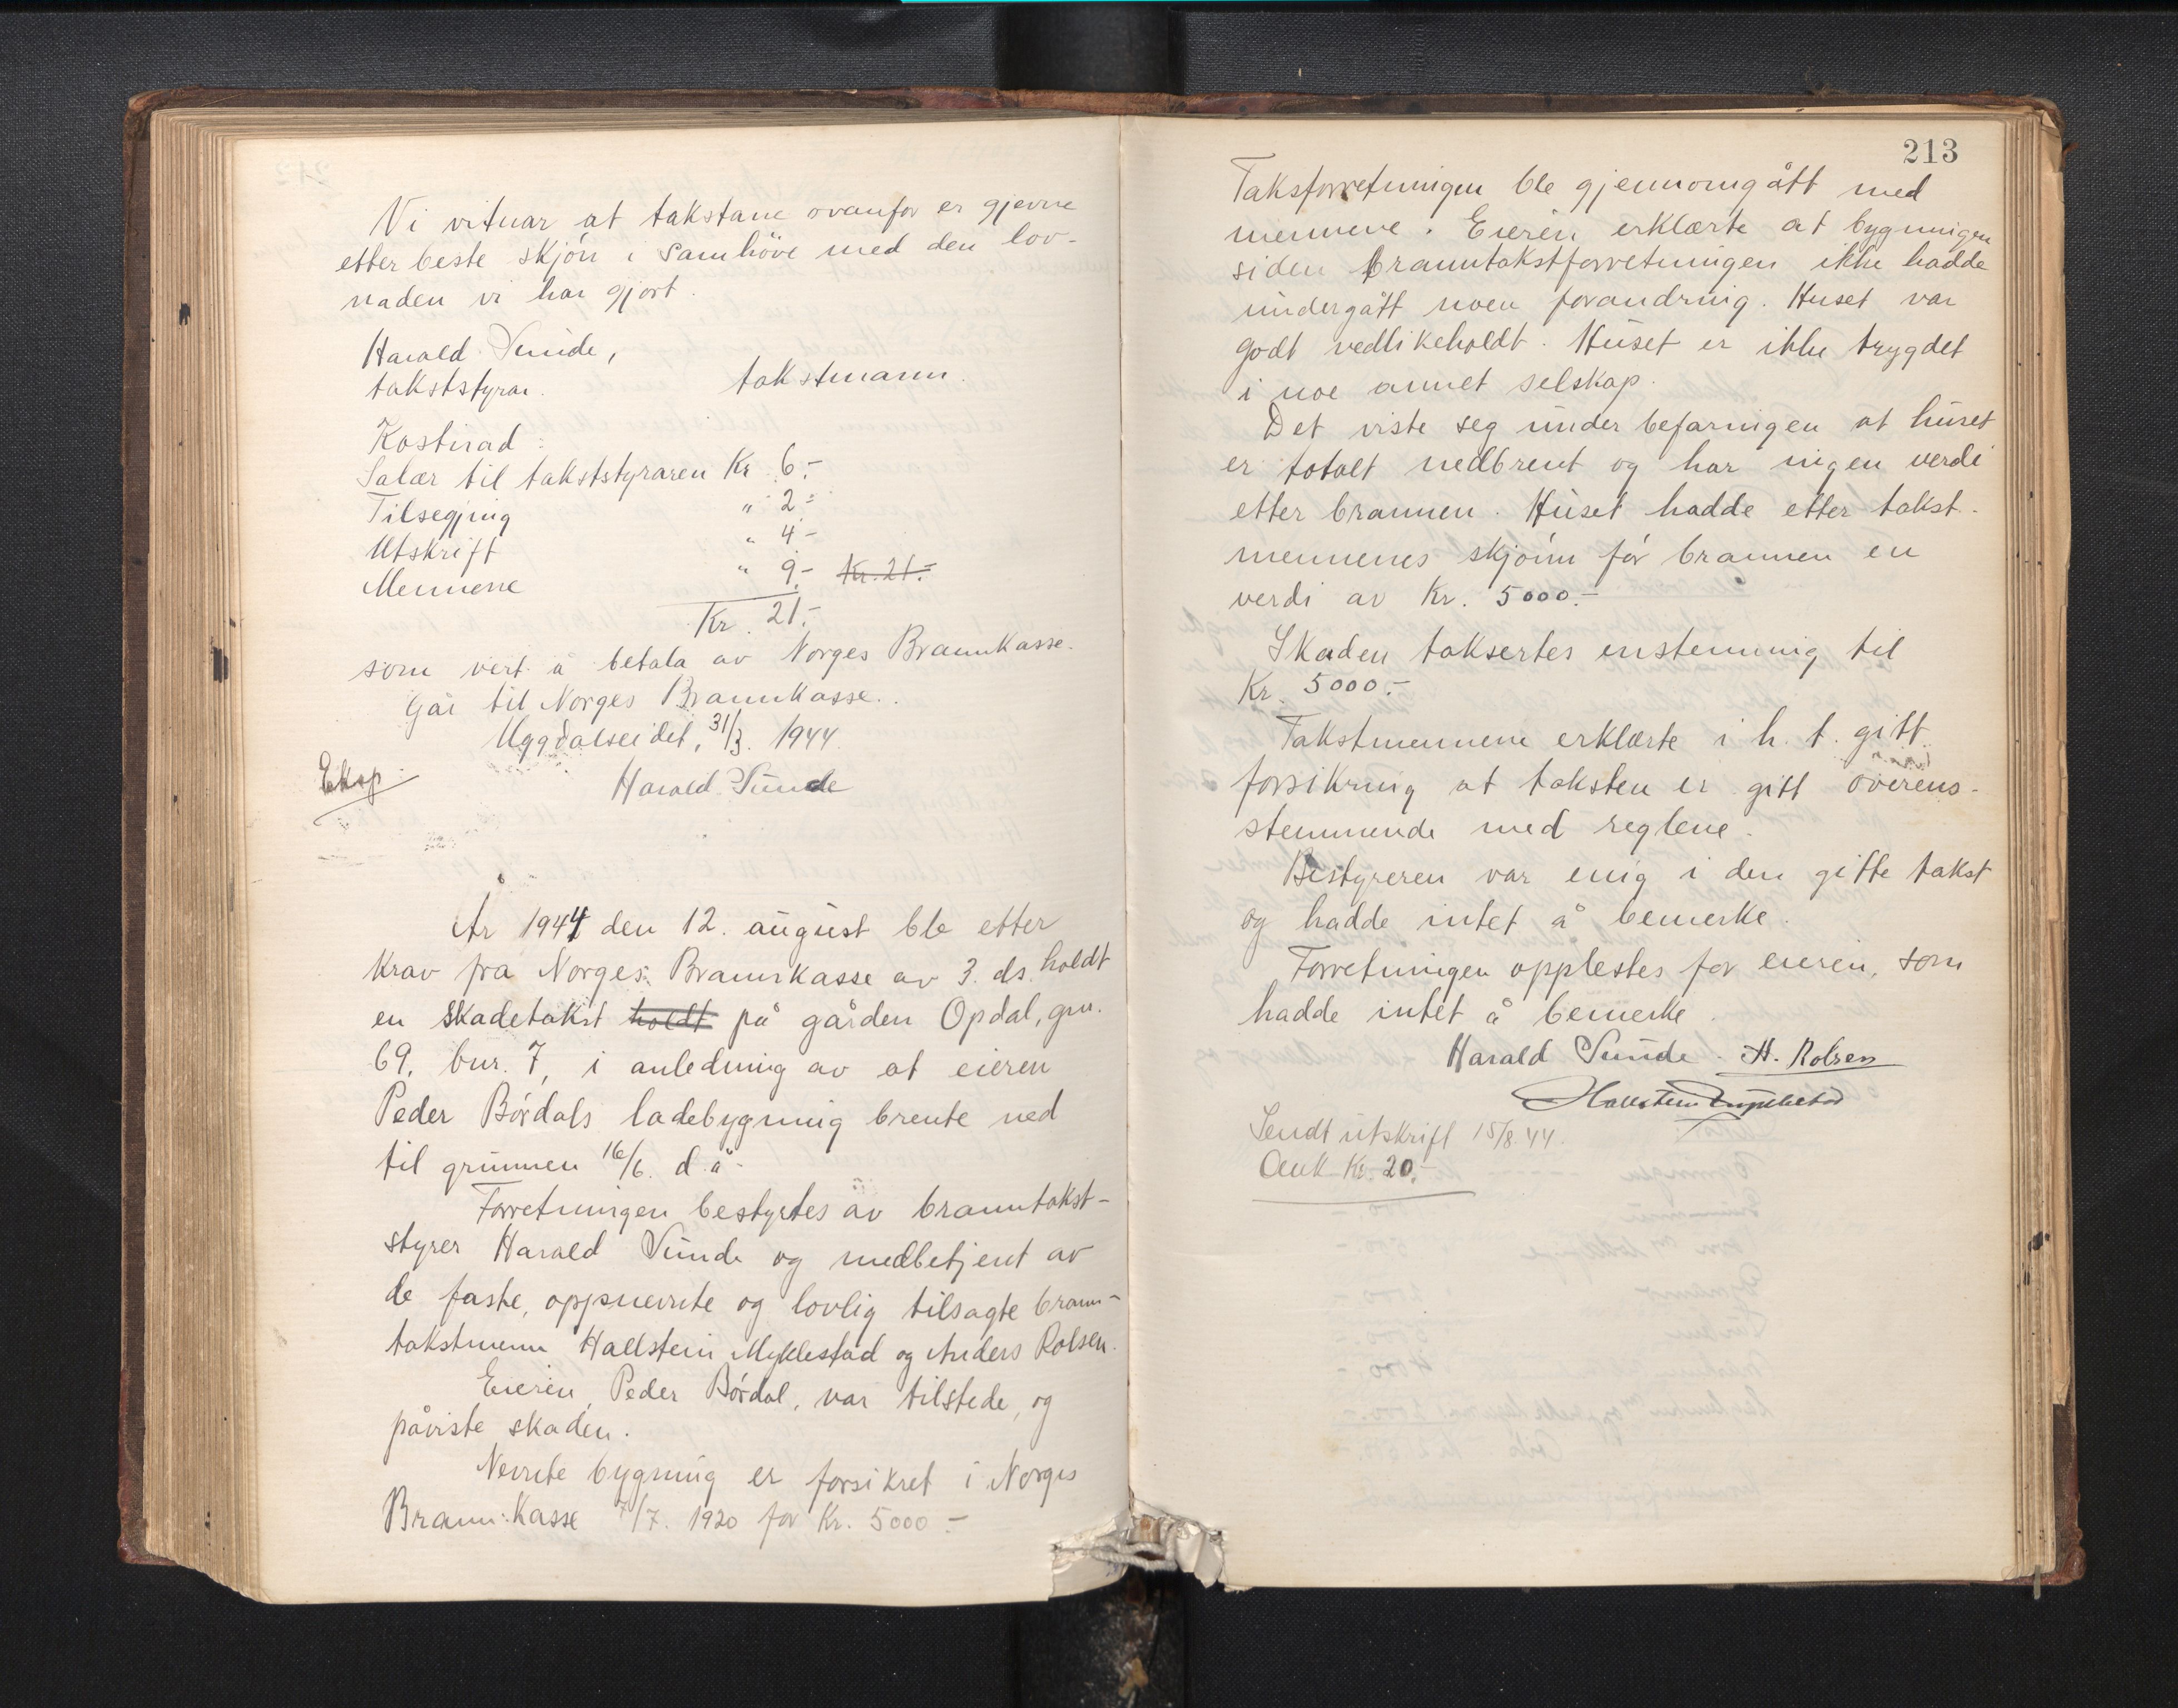 Vi vitnar at takstane ovanfor er gjevne
etter beste skjön i samhöve med den lov-
naden vi har gjort.
Harald Sunde,
takststyrar. takstmann.
Kostnad:
Salær til takststyraren Kr. 6.-
Tilsegjing " 2-
Utskrift " 4-
Mennene " 9.- Kr. 21.-
Kr. 21.-
som vert å betala av Norges Brannkasse.
Går til Norges Brannkasse.
Uggdalseidet, 31/3. 1944.
Eksp. Harald Sunde
År 1944 den 12. august ble etter
krav fra Norges Brannkasse av 3. ds. holdt
en skadetakst holdt på gården Opdal, gnr.
69, bnr. 7, i anledning av at eieren
Peder Bördals ladebygning brente ned
til grunnen 16/6. d.å.
Forretningen bestyrtes av branntakst-
styrer Harald Sunde og medbetjent av
de faste, oppnevnte og lovlig tilsagte brann-
takstmenn Hallstein Myklestad og Anders Rolsen.
Eieren, Peder Bördal, var tilstede, og
påviste skaden.
Nevnte bygning er forsikret i Norges
Brannkasse 7/7. 1920 for Kr. 5000.-
213
Taksforretningen ble gjennomgått med
mennene. Eieren erklærte at bygningen
siden branntakstforretningen ikke hadde
undergått noen forandring. Huset var
godt vedlikeholdt. Huset er ikke trygdet
i noe annet selskap.
Det viste seg under befaringen at huset
er totalt nedbrent og har ingen verdi
etter brannen. Huset hadde etter takst-
mennenes skjönn för brannen en
verdi av Kr. 5000.-
Skaden taksertes enstemmig til
Kr. 5000.-
Takstmennene erklærte i h. t. gitt
forsikring at taksten er gitt overens-
stemmende med reglene.
Bestyreren var enig i den gitte takst
og hadde intet å bemerke.
Forretningen opplestes for eieren, som
hadde intet å bemerke.
Harald Sunde. A. Rolsen
Hallstein Myklestad
Sendt utskrift 15/8.44.
Kr. 20.-